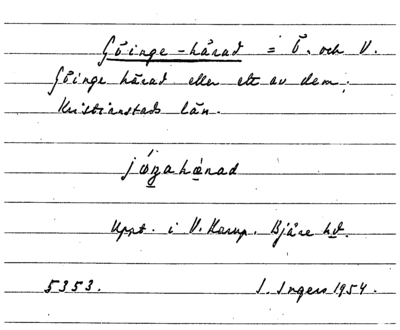 Göinge-härad = Ö. och V.
Göinge härad eller ett av dem;
Kristianstads län.
Uppt. i V. Karup. Bjäre hd.
5353. I. Ingers 1954.